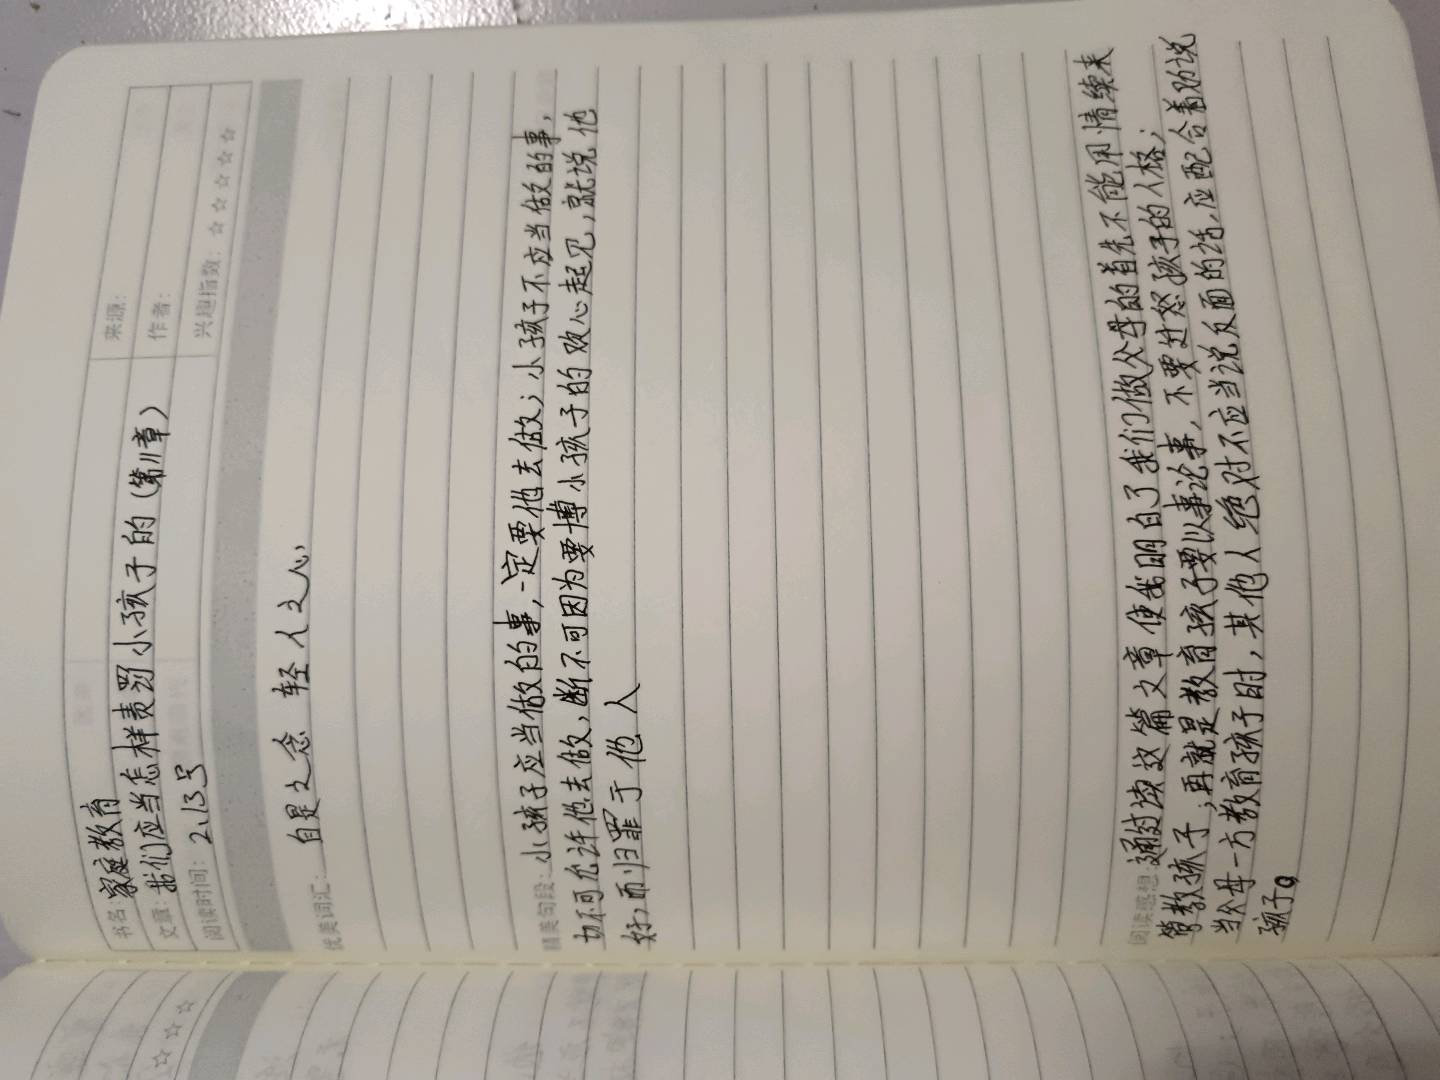 书名:家庭教育
来源:
文章:我们应当怎样责罚小孩子的(第11章)
作者:
阅读时间:2、13号
兴趣指数:☆☆☆☆☆
优美词汇:自是之念 轻人之心
精美句段:小孩子应当做的事,一定要他去做;小孩子不应当做的事,
切不可允许他去做,断不可因为要博小孩子的欢心起见,就说他
好,而归罪于他人
阅读感想:通过读这篇文章使我明白了我们做父母的首先不能用情绪来
管教孩子;再就是教育孩子要以事论事,不要迁怒孩子的人格;
当父母一方教育孩子时,其他人绝对不应当说反面的话,应配合着劝说
孩子。
☆☆☆